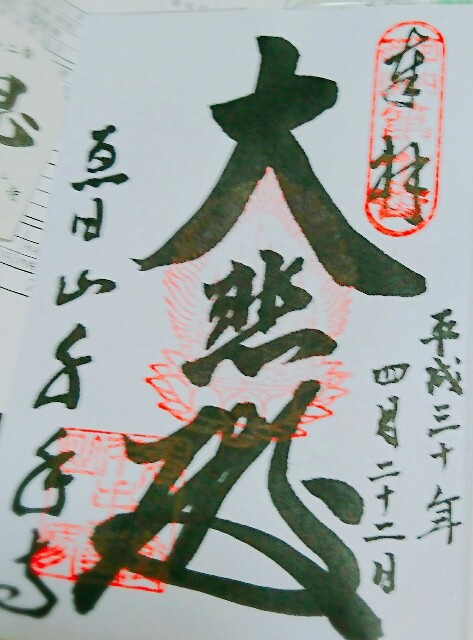 奉拝
平成三十年
四月二十二日
大悲殿
恵日山千手寺